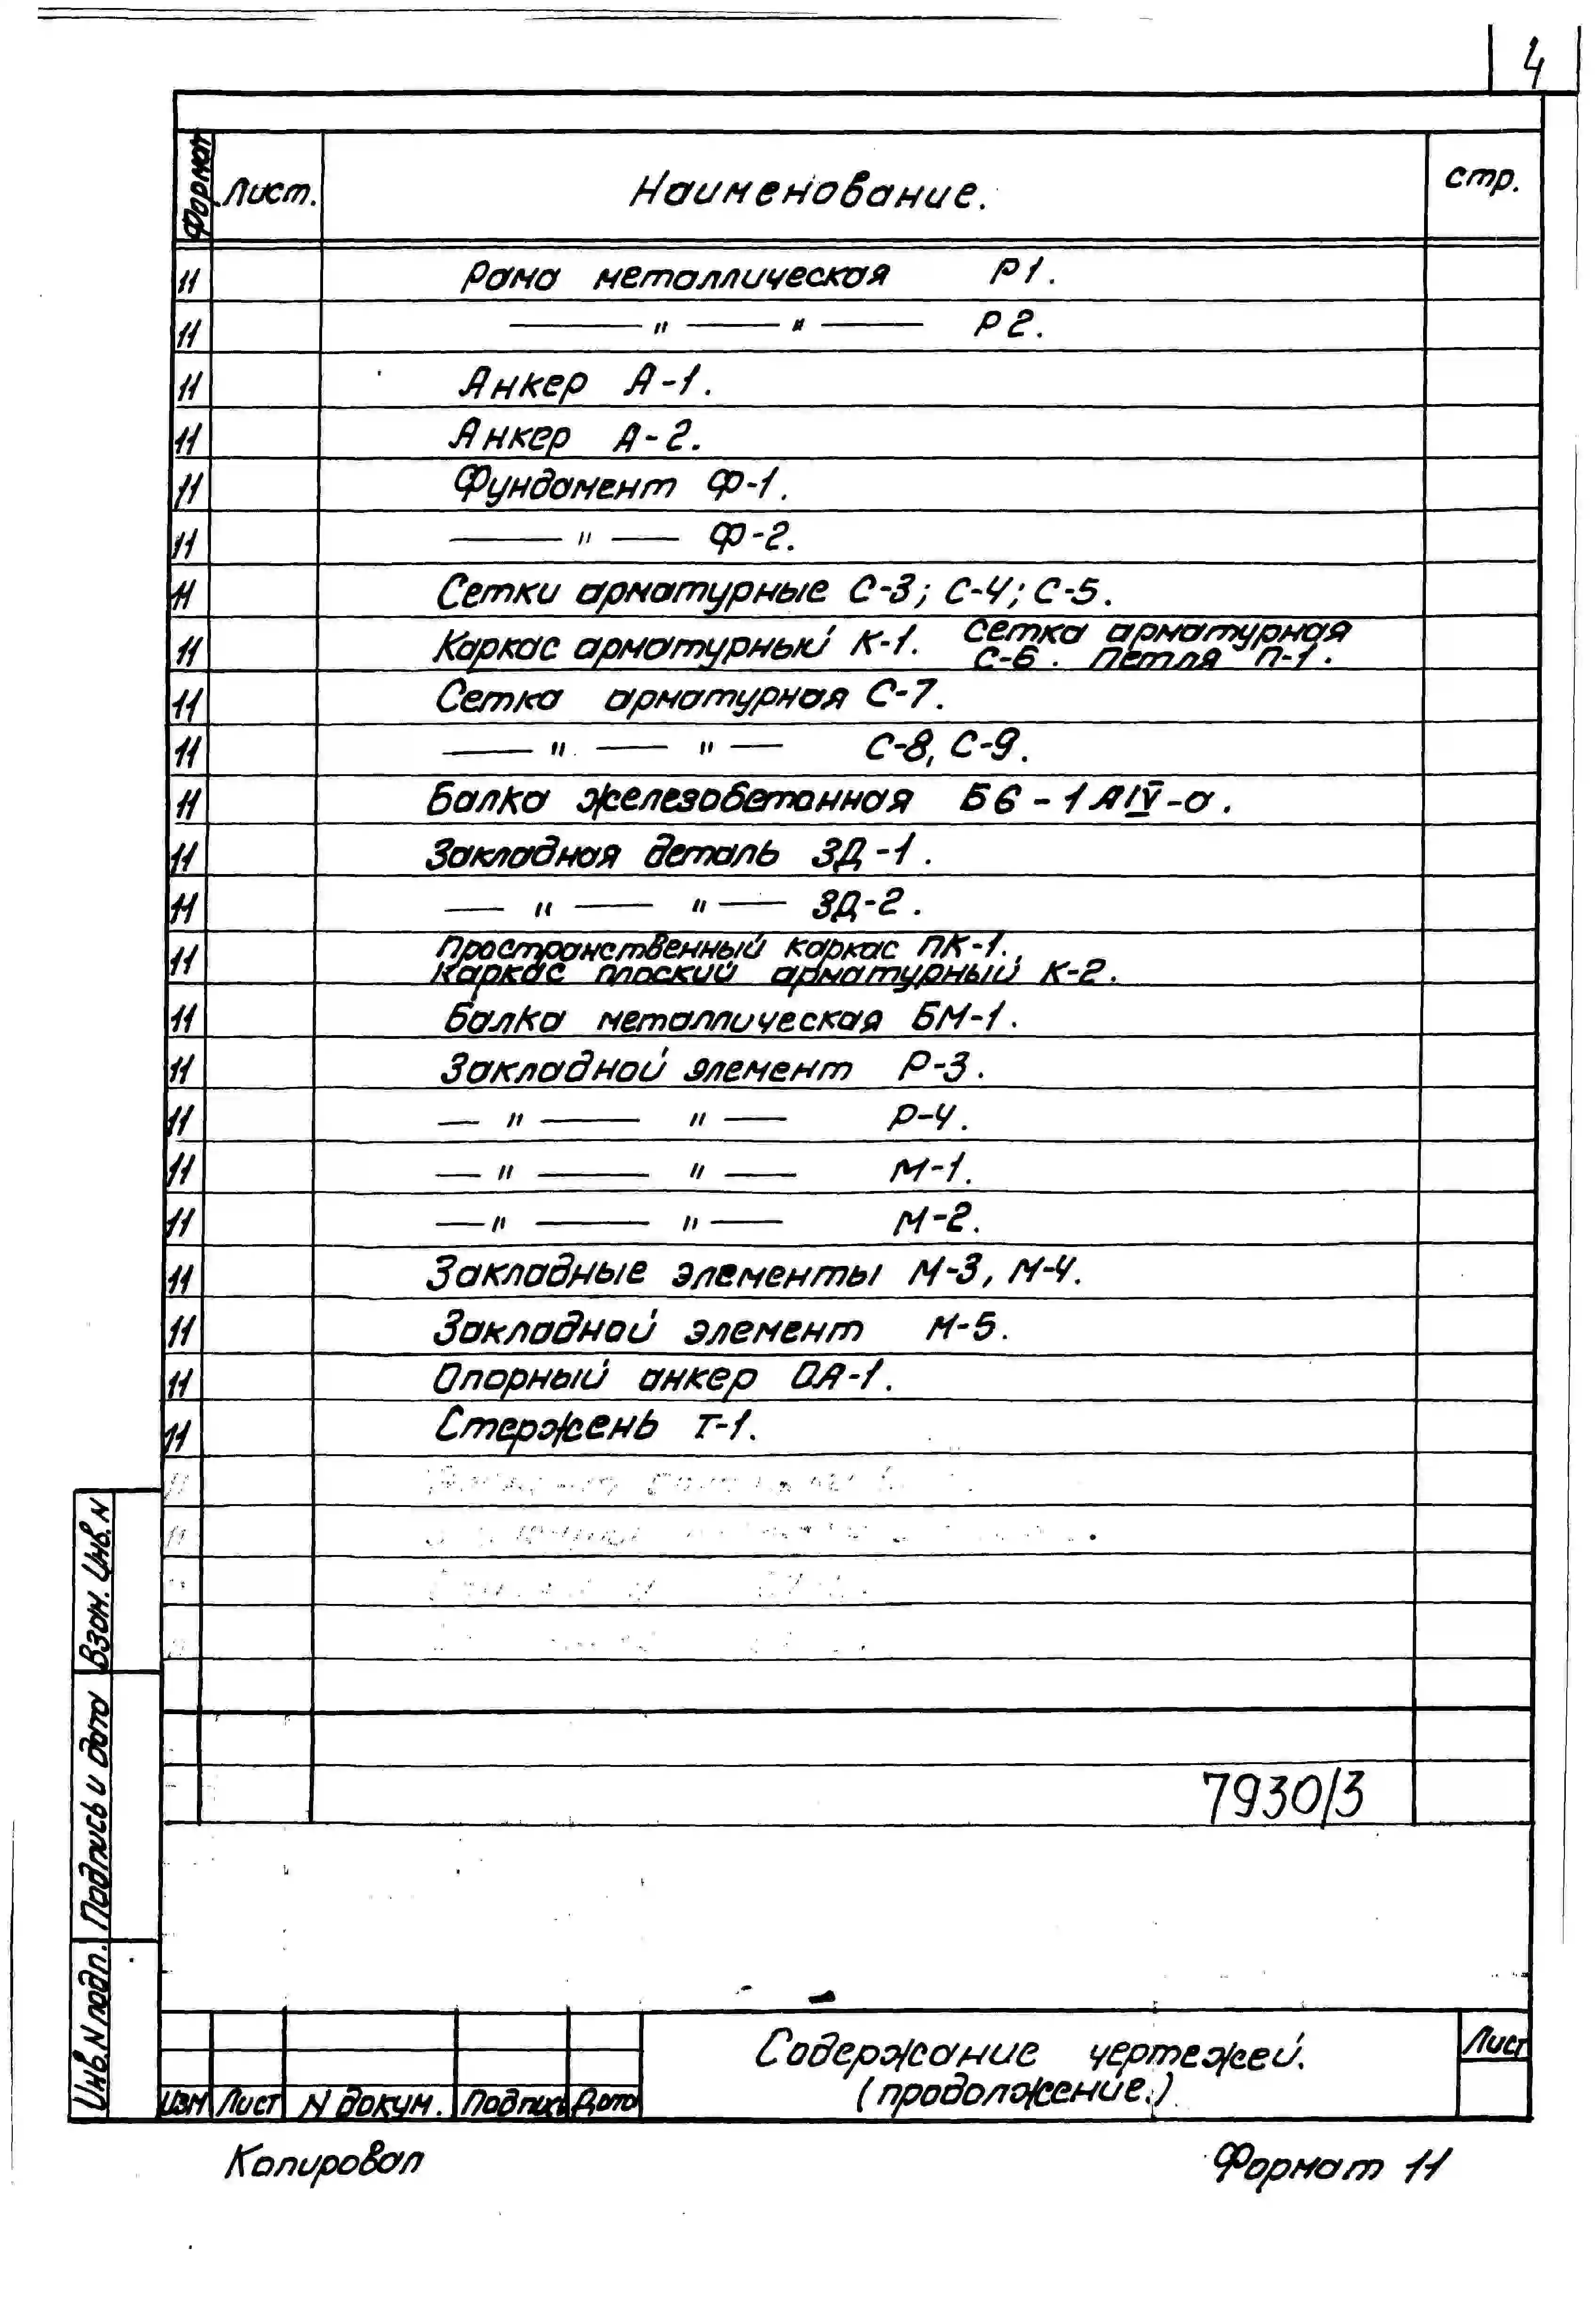 4
Формат Лист. Наименование. стр.
11 Рама металлическая Р1.
11 —— " —— " —— Р2.
11 Анкер А-1.
11 Анкер А-2.
11 Фундамент Ф-1.
11 —— " —— Ф-2.
11 Сетки арматурные С-3; С-4; С-5.
11 Каркас арматурный К-1. Сетка арматурная
С-6. Петля П-1.
11 Сетка арматурная С-7.
11 —— " —— " —— С-8, С-9.
11 Балка железобетонная Б6-1АIV-а.
11 Закладная деталь ЗД-1.
11 —— " —— " —— ЗД-2.
11 Пространственный каркас ПК-1.,
Каркас плоский арматурный К-2.
11 Балка металлическая БМ-1.
11 Закладной элемент Р-3.
11 — " —— " —— Р-4.
11 — " —— " —— М-1.
11 — " —— " —— М-2.
11 Закладные элементы М-3, М-4.
11 Закладной элемент М-5.
11 Опорный анкер ОА-1.
11 Стержень Т-1.
7930/3
Взам. Инв. N
Подпись и дата
Инв. N подп.
Изм Лист N докум. Подпись Дата
Содержание чертежей.
(продолжение.)
Лист
Копировал Формат 11